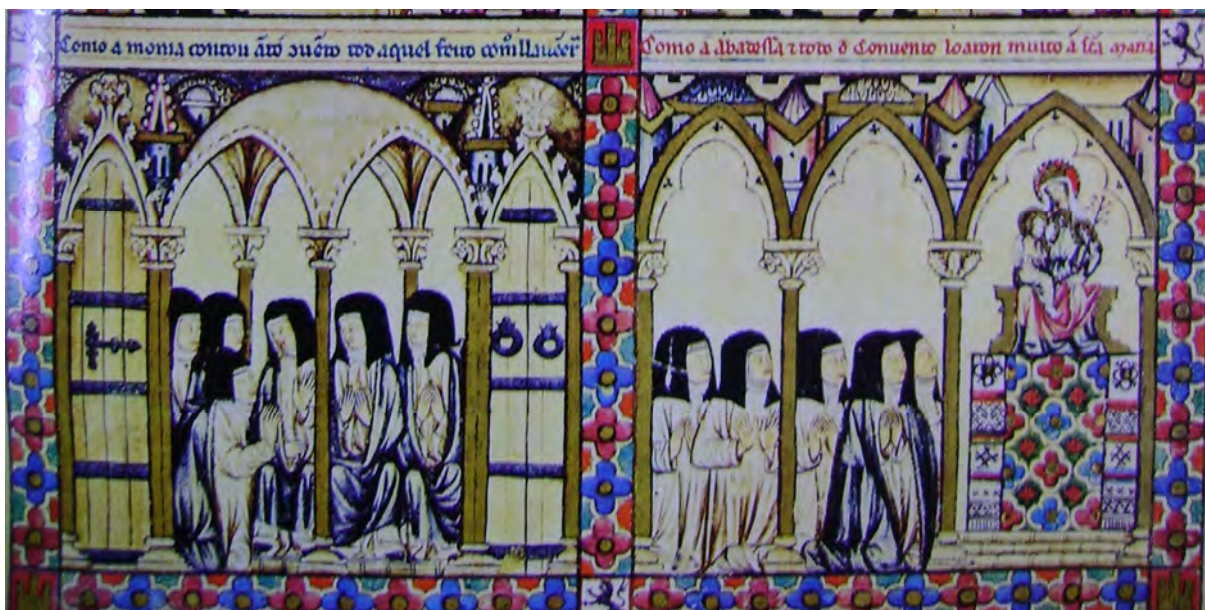 Como a monia contou ãto ɔuẽto tod aquel feito com̃
Como a abadessa ⁊ toto o Conuento loaron muito á sc̃a maria